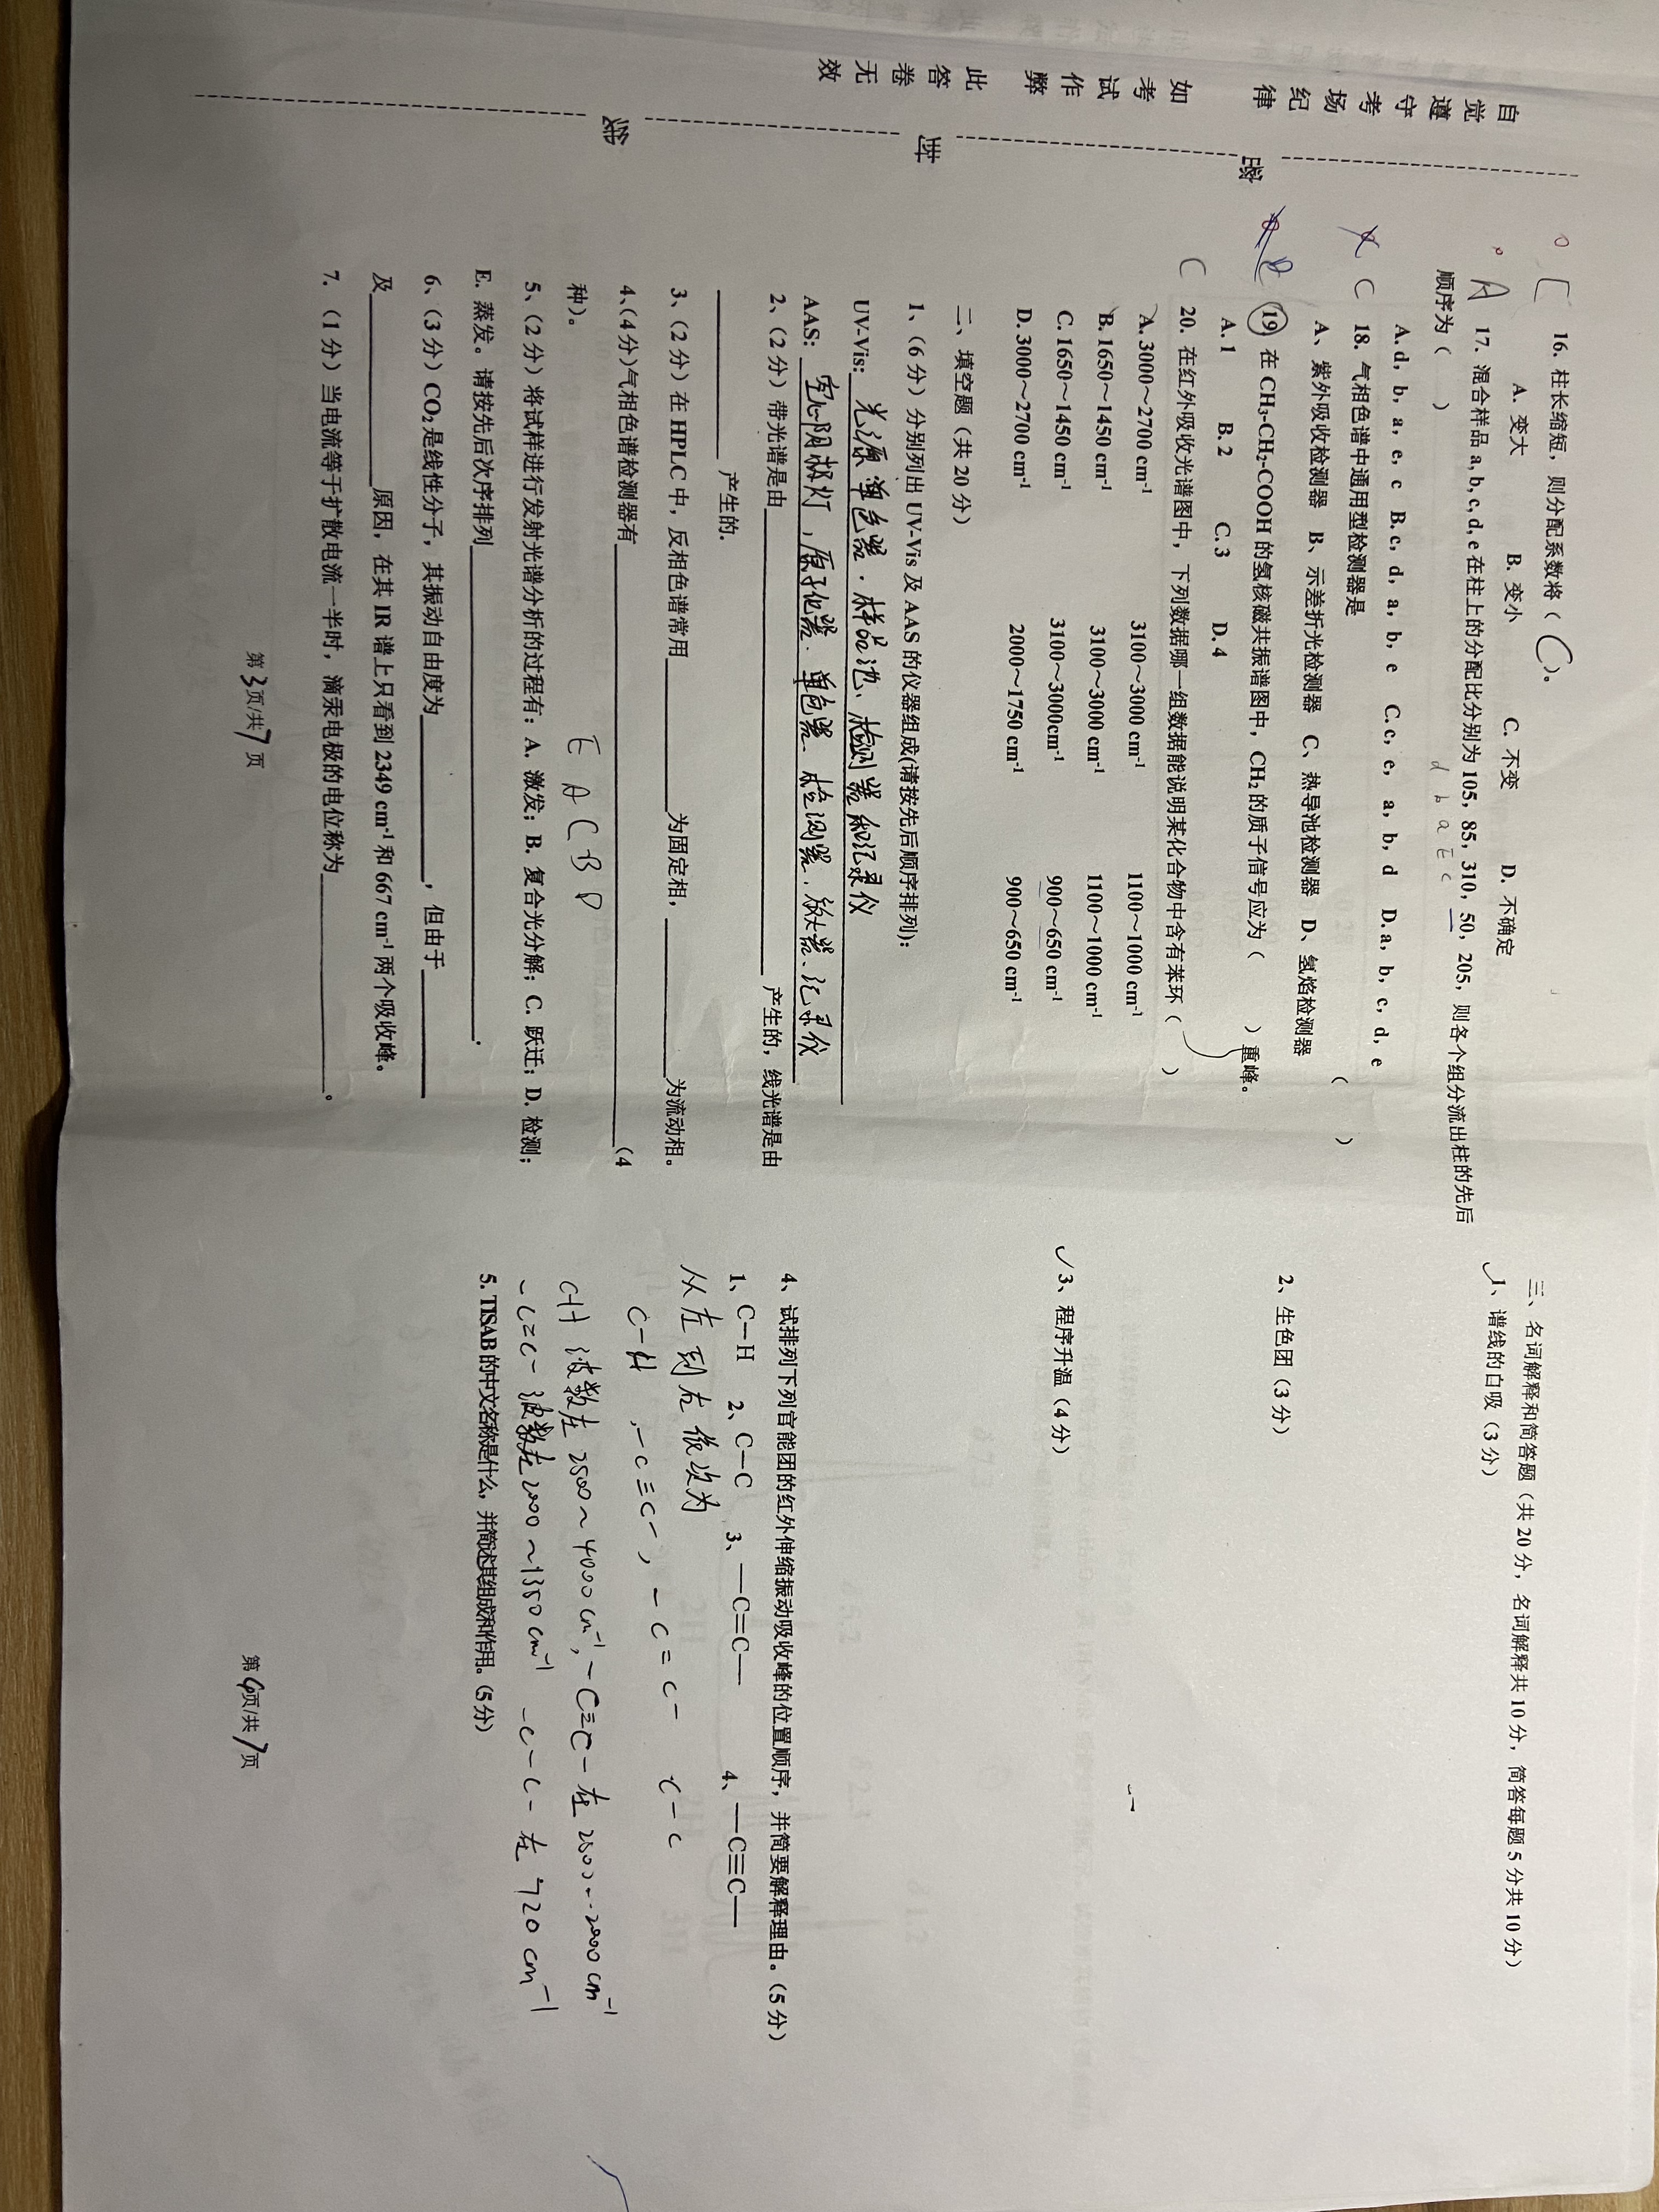 自觉遵守考场纪律 如考试作弊 此答卷无效
密 封 线
C 16. 柱长缩短，则分配系数将（ C ）。
A. 变大 B. 变小 C. 不变 D. 不确定
A 17. 混合样品 a, b, c, d, e 在柱上的分配比分别为 105，85，310，50，205，则各个组分流出柱的先后
顺序为（ ） d b a E c
A. d， b， a， e， c B. c， d， a， b， e C. c， e， a， b， d D. a， b， c， d， e
C 18. 气相色谱中通用型检测器是 （ ）
A、紫外吸收检测器 B、示差折光检测器 C、热导池检测器 D、氢焰检测器
19. 在 CH₃-CH₂-COOH 的氢核磁共振谱图中，CH₂ 的质子信号应为（ ）重峰。
A. 1 B. 2 C. 3 D. 4
C 20. 在红外吸收光谱图中，下列数据哪一组数据能说明某化合物中含有苯环（ ）
A. 3000～2700 cm⁻¹ 3100～3000 cm⁻¹ 1100～1000 cm⁻¹
B. 1650～1450 cm⁻¹ 3100～3000 cm⁻¹ 1100～1000 cm⁻¹
C. 1650～1450 cm⁻¹ 3100～3000cm⁻¹ 900～650 cm⁻¹
D. 3000～2700 cm⁻¹ 2000～1750 cm⁻¹ 900～650 cm⁻¹
二、填空题（共 20 分）
1、（6 分）分别列出 UV-Vis 及 AAS 的仪器组成(请按先后顺序排列)：
UV-Vis: 光源 单色器．样品池、检测器和记录仪
AAS: 空心阴极灯，原子化器．单色器．检测器．放大器．记录仪
2、（2 分）带光谱是由 产生的，线光谱是由
产生的.
3、（2 分）在 HPLC 中，反相色谱常用 为固定相， 为流动相。
4、（4 分）气相色谱检测器有 （4
种）。 E A C B D
5、（2 分）将试样进行发射光谱分析的过程有：A. 激发；B. 复合光分解；C. 跃迁；D. 检测；
E. 蒸发。请按先后次序排列 .
6、（3 分）CO₂ 是线性分子，其振动自由度为 ，但由于
及 原因，在其 IR 谱上只看到 2349 cm⁻¹ 和 667 cm⁻¹ 两个吸收峰。
7. （1 分）当电流等于扩散电流一半时，滴汞电极的电位称为 。
第 3 页/共 7 页
三、名词解释和简答题（共 20 分，名词解释共 10 分，简答每题 5 分共 10 分）
1、谱线的自吸（3 分）
2、生色团（3 分）
3、程序升温（4 分）
4、试排列下列官能团的红外伸缩振动吸收峰的位置顺序，并简要解释理由。（5 分）
1、C－H 2、C－C 3、—C=C— 4、—C≡C—
从左到右依次为
C-H ，-C≡C-， -C=C- C-C
C-H 波数在 2500～4000 cm⁻¹，-C≡C- 在 2500--2000 cm⁻¹
-C=C- 波数在 2000～1350 cm⁻¹ -C-C- 在 720 cm⁻¹
5. TISAB 的中文名称是什么，并简述其组成和作用。（5 分）
第 4 页/共 7 页